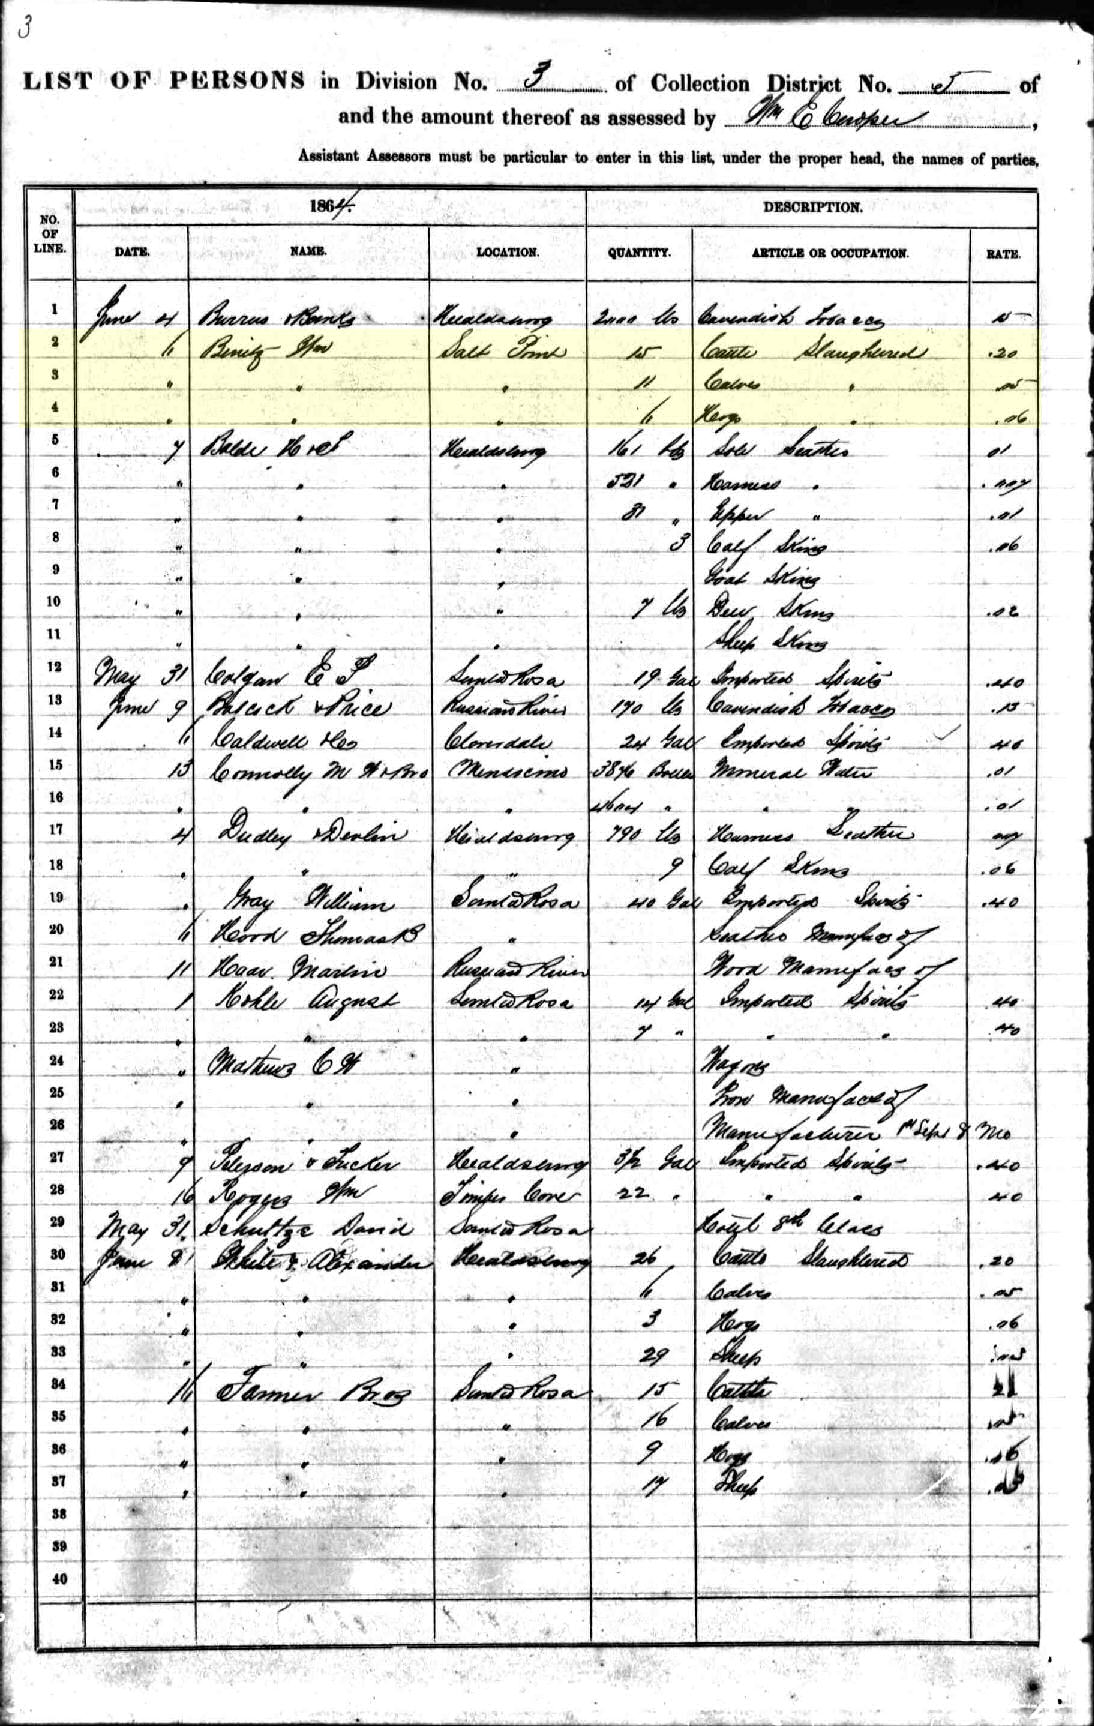 3
LIST OF PERSONS in Division No. 3 of Collection District No. 5 of
and the amount thereof as assessed by Wm E Cooper,
Assistant Assessors must be particular to enter in this list, under the proper head, the names of parties,
NO. OF LINE. 1864. DESCRIPTION.
DATE. NAME. LOCATION. QUANTITY. ARTICLE OR OCCUPATION. RATE.
1 June 4 Burrus & Banks Healdsburg 2000 lbs Cavendish Tobacco 15
2 6 Benitz Wm Salt Point 15 Cattle Slaughtered .20
3 " " " 11 Calves " .05
4 " " " 6 Hogs " .06
5 7 Healdsburg 161 lbs Sole Leather 01
6 " " " 521 " Harness " .007
7 " " " 81 " Upper " .01
8 " " " 3 Calf Skins .06
9 " " " Goat Skins
10 " " " 7 lbs Deer Skins .02
11 " " " Sheep Skins
12 May 31 Colgan E P Santa Rosa 19 Gal Imported Spirits .40
13 June 9 Babcock & Price Russian River 170 lbs Cavendish Tobacco .15
14 11 Caldwell & Co Cloverdale 24 Gal Imported Spirits 40
15 13 Connolly M W & Bro Mendocino 3876 Bottles Mineral Water .01
16 " " " " " " .01
17 4 Dudley & Devlin Healdsburg 790 lbs Harness Leather 007
18 " " " 9 Calf Skins .06
19 " Gray William Santa Rosa 40 Gal Imported Spirits .40
20 6 Hood Thomas B " Leather Manufacs of
21 11 Haar Martin Russian River Wood Manufacs of
22 1 Kohle August Santa Rosa 14 Gal Imported Spirits 40
23 " " " 7 " " " 40
24 " Mathews C W " Wagons
25 " " " Iron Manufacs of
26 " " " Manufacturer 1st Sept 8 Mo
27 9 Peterson & Tucker Healdsburg 3½ Gal Imported Spirits .40
28 16 Rogers Wm Timber Cove 22 " " " 40
29 May 31 Schultze David Santa Rosa Hotel 8th Class
30 June White & Alexander Healdsburg 26 Cattle Slaughtered .20
31 " " " 6 Calves .05
32 " " " 3 Hogs .06
33 " " " 29 Sheep
34 16 Farmer Bros Santa Rosa 15 Cattle
35 " " " 16 Calves
36 " " " 9 Hogs .06
37 " " " 17 Sheep
38
39
40